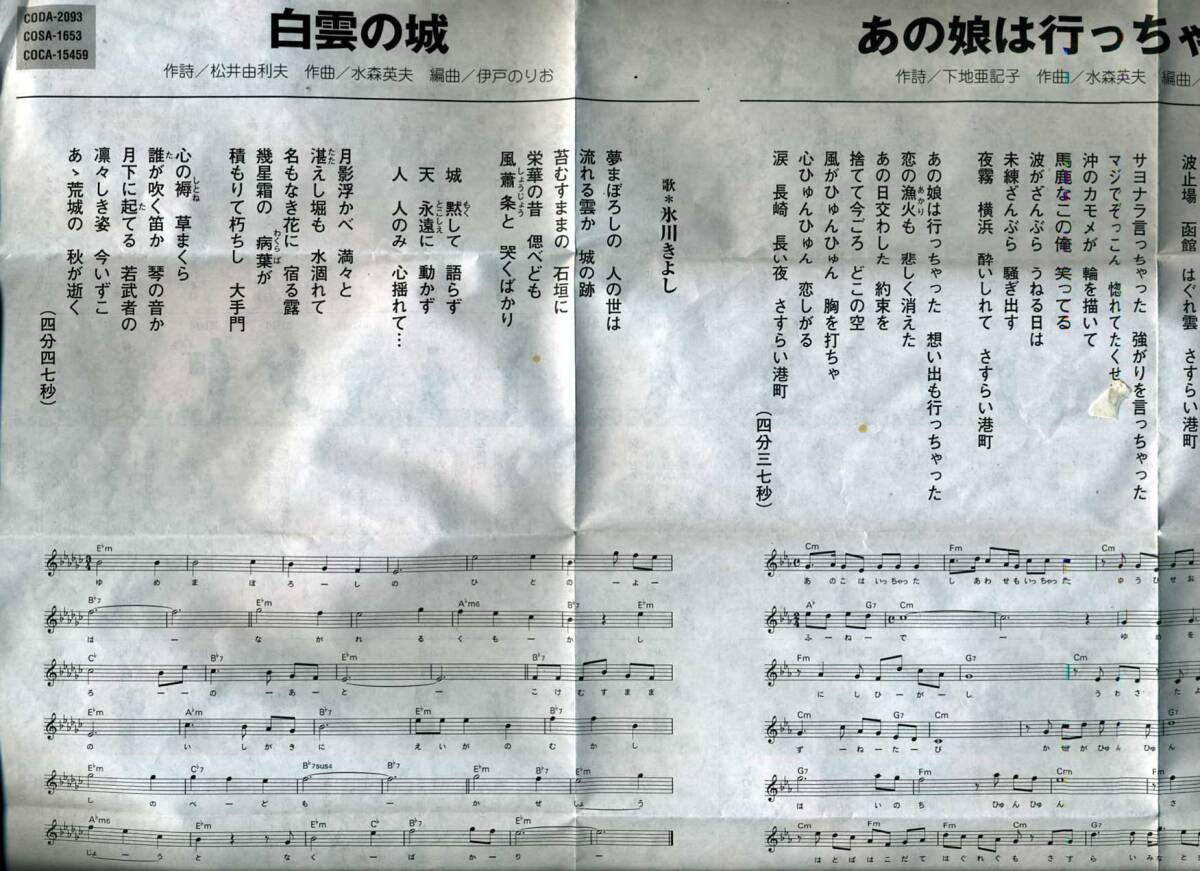 CODA-2093
COSA-1653
COCA-15459
白雲の城
作詩／松井由利夫 作曲／水森英夫 編曲／伊戸のりお
歌＊氷川きよし
夢まぼろしの 人の世は
流れる雲か 城の跡
苔むすままの 石垣に
栄華の昔 偲べども
風蕭条と 哭くばかり
しょうじょう
城 黙して 語らず
もく
天 永遠に 動かず
とこしえ
人 人のみ 心揺れて…
月影浮かべ 満々と
湛えし堀も 水涸れて
たた
名もなき花に 宿る露
幾星霜の 病葉が
わくらば
積もりて朽ちし 大手門
心の褥 草まくら
しとね
誰が吹く笛か 琴の音か
た
月下に起てる 若武者の
た
凛々しき姿 今いずこ
あゝ荒城の 秋が逝く
（四分四七秒）
E♭m
ゆ め ま ぼ ろ ー し の ひ と の ー よ ー
B♭7 E♭m A♭m6 B♭7 E♭m
は ー な が れ る く も ー か し
C♭ B♭7 E♭m B♭7
ろ ー の ー あ と ー こ け む す ま ま
E♭m A♭m B♭7 E♭m
の い し が き に え い が の む か し
E♭m C♭7 B♭7sus4 B♭7 E♭m
し の べ ー ど も ー か ぜ しょ う
A♭m6 E♭m E♭m C♭ B♭7 E♭m
じょ ー う と な く ー ば か ー り ー
あの娘は行っちゃ
作詩／下地亜記子 作曲／水森英夫 編曲／
波止場 函館 はぐれ雲 さすらい港町
サヨナラ言っちゃった 強がりを言っちゃった
マジでぞっこん 惚れてたくせ
沖のカモメが 輪を描いて
馬鹿なこの俺 笑ってる
波がざんぶら うねる日は
未練ざんぶら 騒ぎ出す
夜霧 横浜 酔いしれて さすらい港町
あの娘は行っちゃった 想い出も行っちゃった
恋の漁火も 悲しく消えた
あかり
あの日交わした 約束を
捨てて今ごろ どこの空
風がひゅんひゅん 胸を打ちゃ
心ひゅんひゅん 恋しがる
涙 長崎 長い夜 さすらい港町
（四分三七秒）
Cm Fm Cm
あ のこは いっちゃった し あわせも いっちゃった ゆ う ひ せ お
A♭ G7 Cm
ふ ー ね ー で ー ゆ め を
Fm G7 Cm
に し ひ ー が ー し う わ さ た よ
Cm G7 Cm G7
ず ー ね ー た ー び か ぜ が ひゅ ん ひゅ ん
Fm Fm Cm
は い の ち ひゅ ん ひゅ ん さ
Cm Fm Fm Cm Cm
は と ば は こ だ て は ぐ れ ぐ も さ す ら い み な と